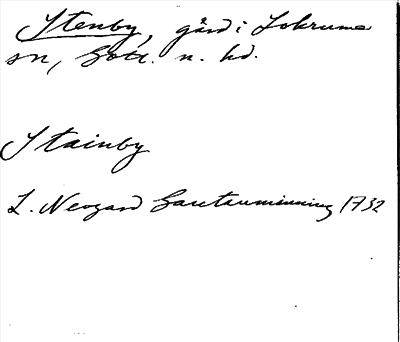 Stenby, gård i Lokrume
sn, Gotl. n. hd.
Stainby
L. Neogard Gautauminning 1732